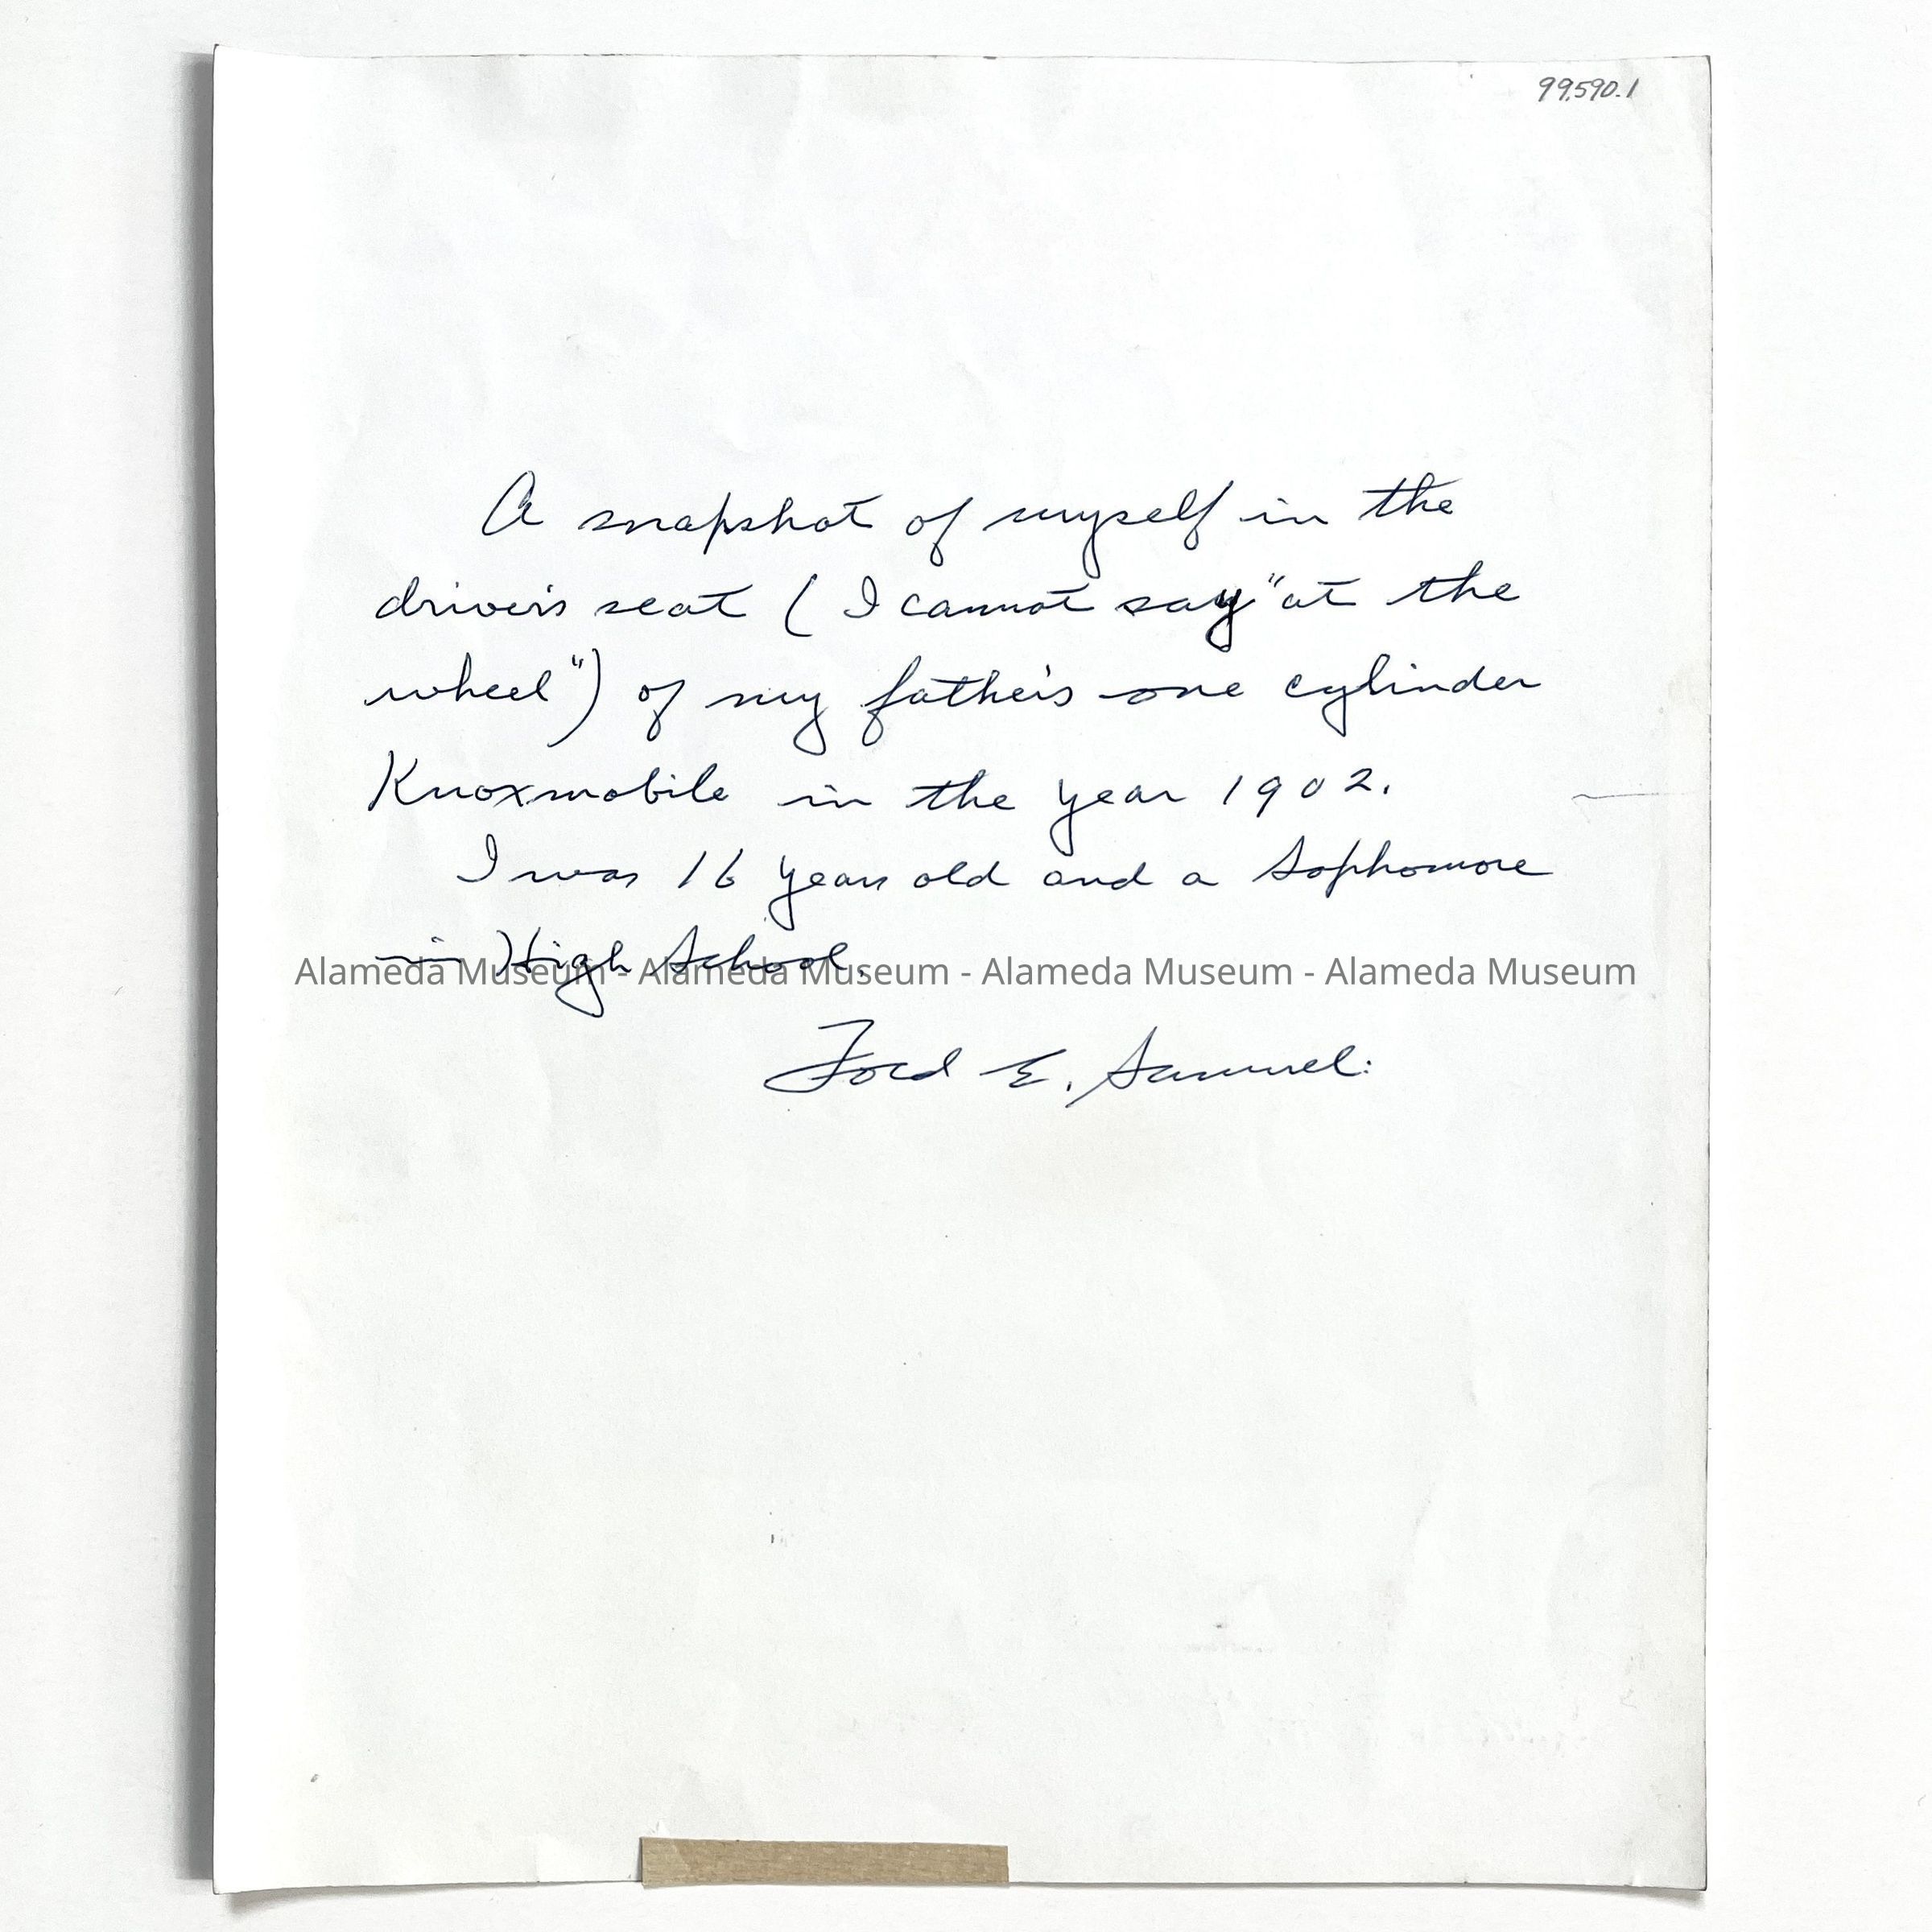 99.590.1
A snapshot of myself in the
driver's seat ( I cannot say "at the
wheel") of my father's one cylinder
Knoxmobile in the year 1902.
I was 16 years old and a Sophomore
in High School.
Alameda Museum - Alameda Museum - Alameda Museum - Alameda Museum
Ford E. Samuel: